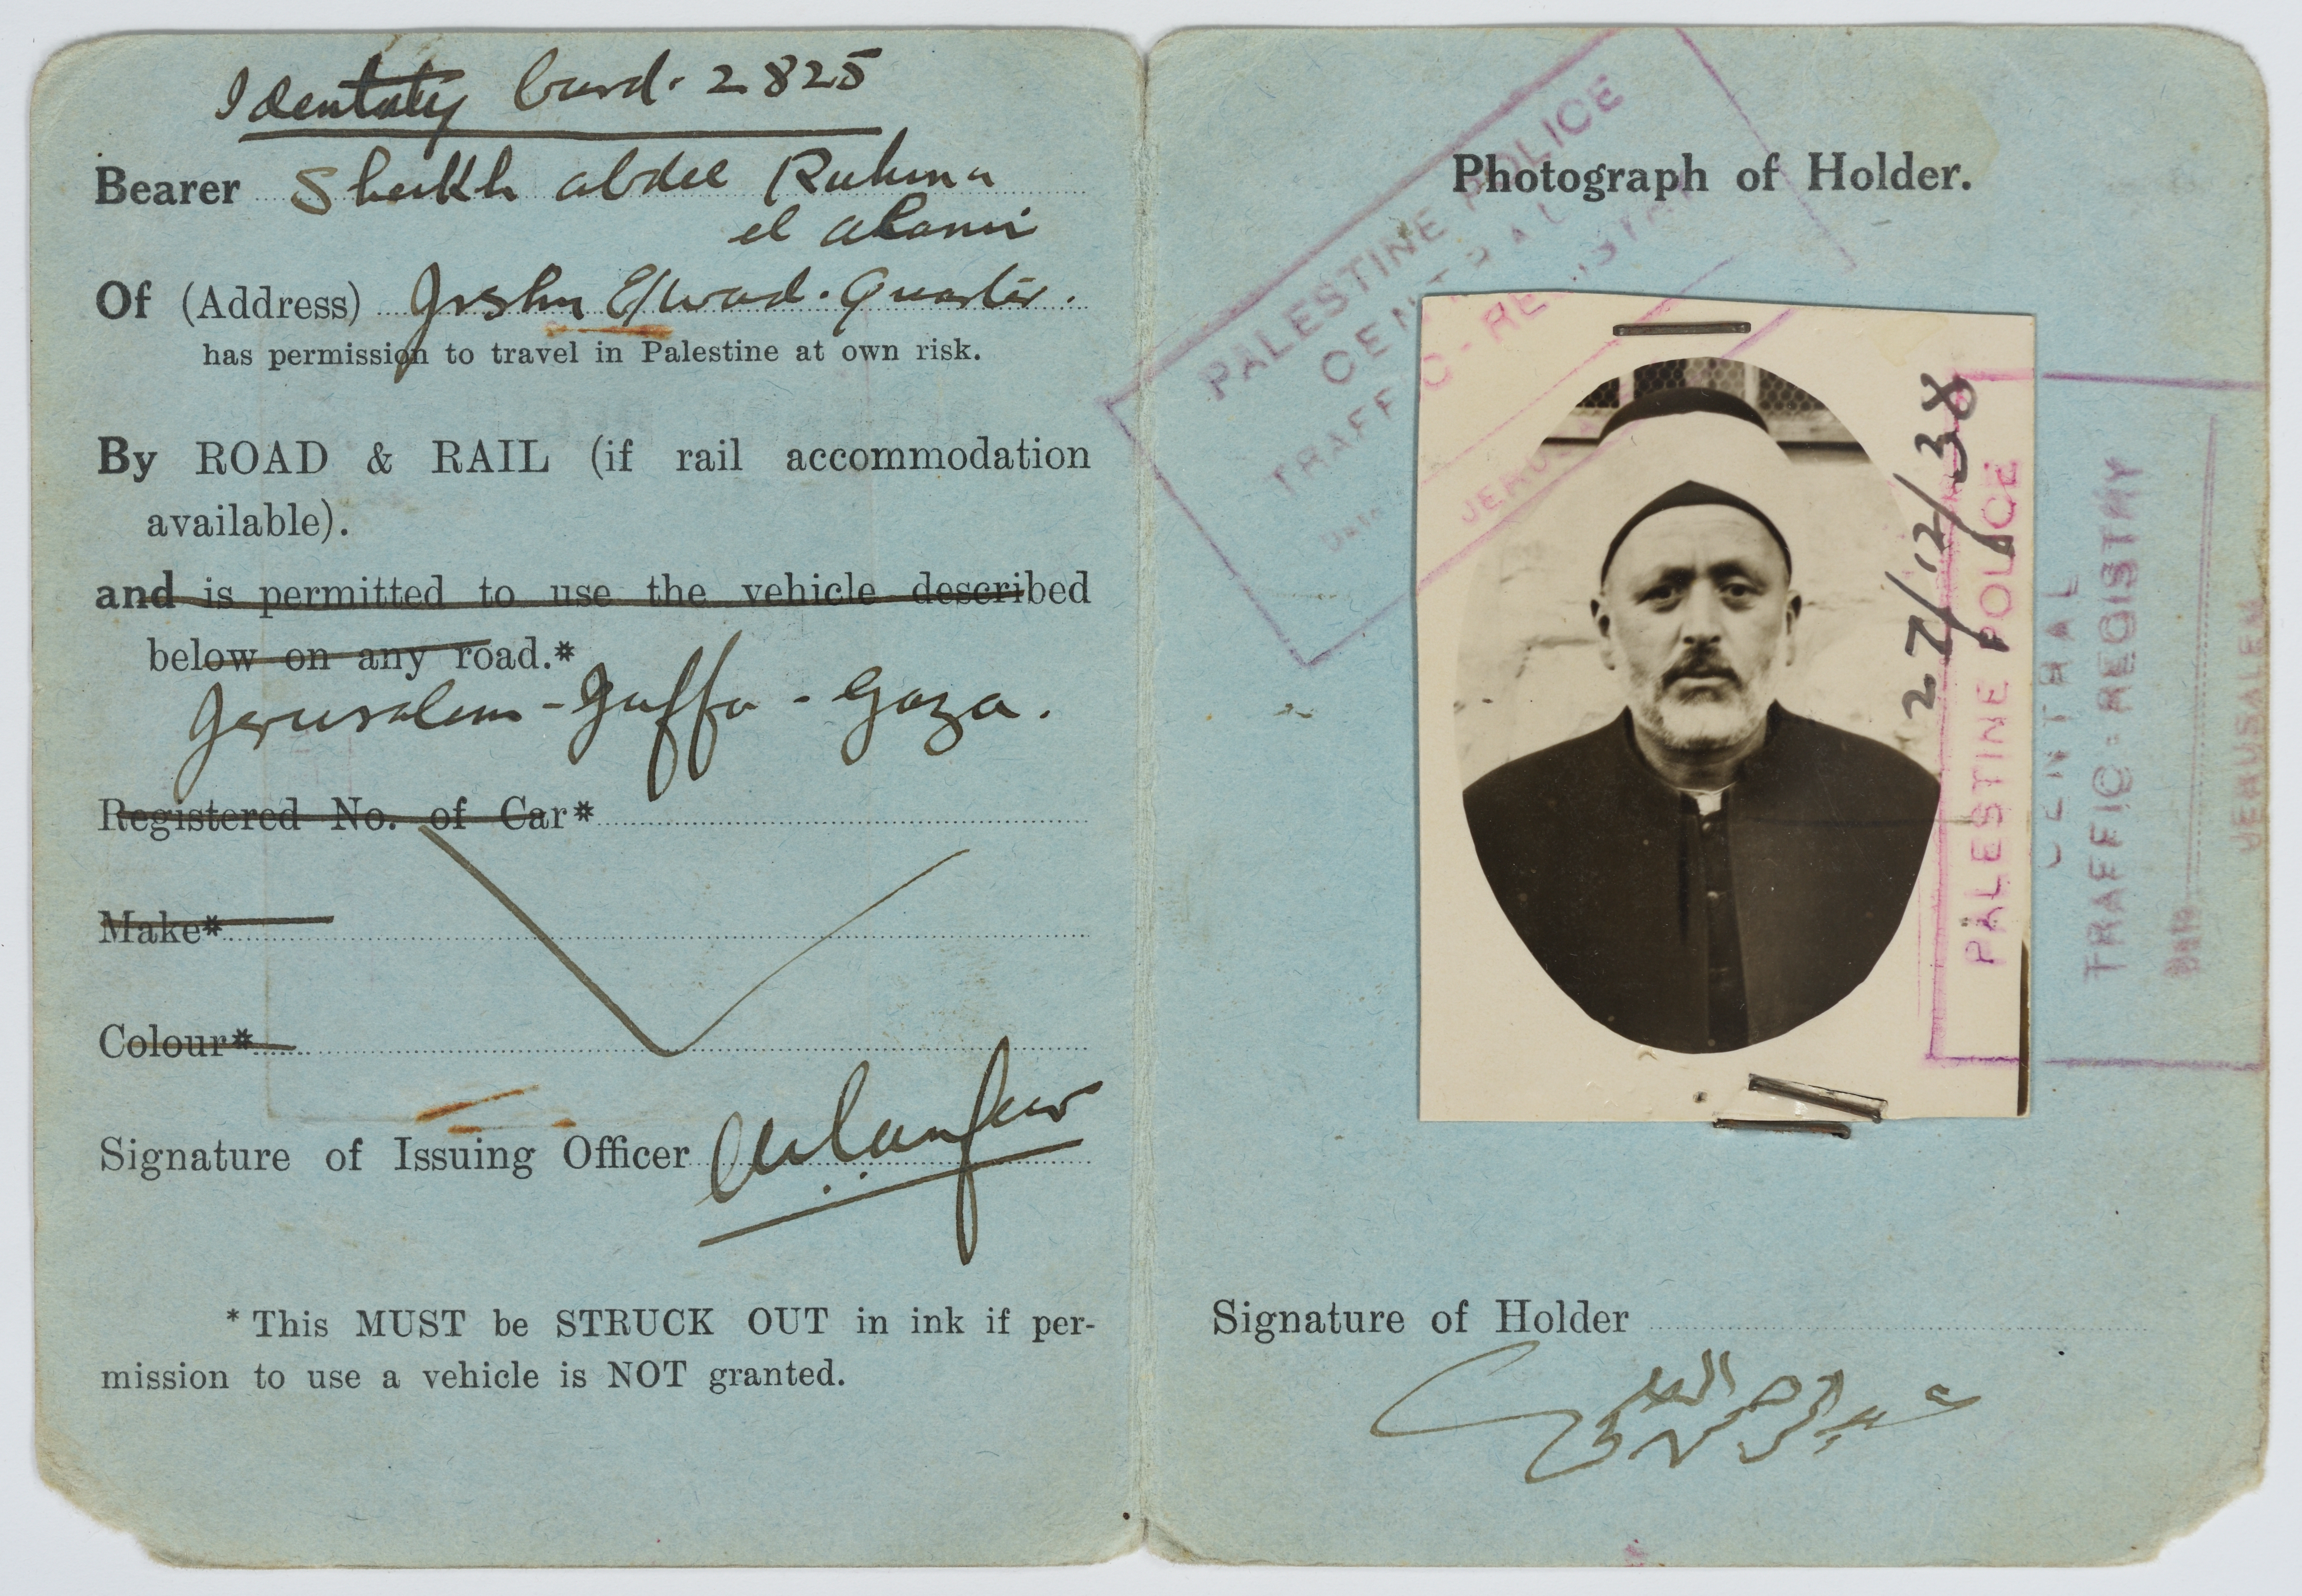 Identaty Card. 2825
Bearer Sheikh abdel Rahma
el alami
Of (Address) Jrslm El wad. Quarter.
has permission to travel in Palestine at own risk.
By ROAD & RAIL (if rail accommodation
available).
and is permitted to use the vehicle described
below on any road.*
Jerusalem - Jaffa - Gaza.
Registered No. of Car*
Make*
Colour*
Signature of Issuing Officer
* This MUST be STRUCK OUT in ink if per-
mission to use a vehicle is NOT granted.
Photograph of Holder.
PALESTINE POLICE
CENTRAL
TRAFFIC-REGISTRY
Date
JERUSALEM
27/12/38
PALESTINE POLICE
CENTRAL
TRAFFIC-REGISTRY
JERUSALEM
Signature of Holder
عبد الرحمن العلمي